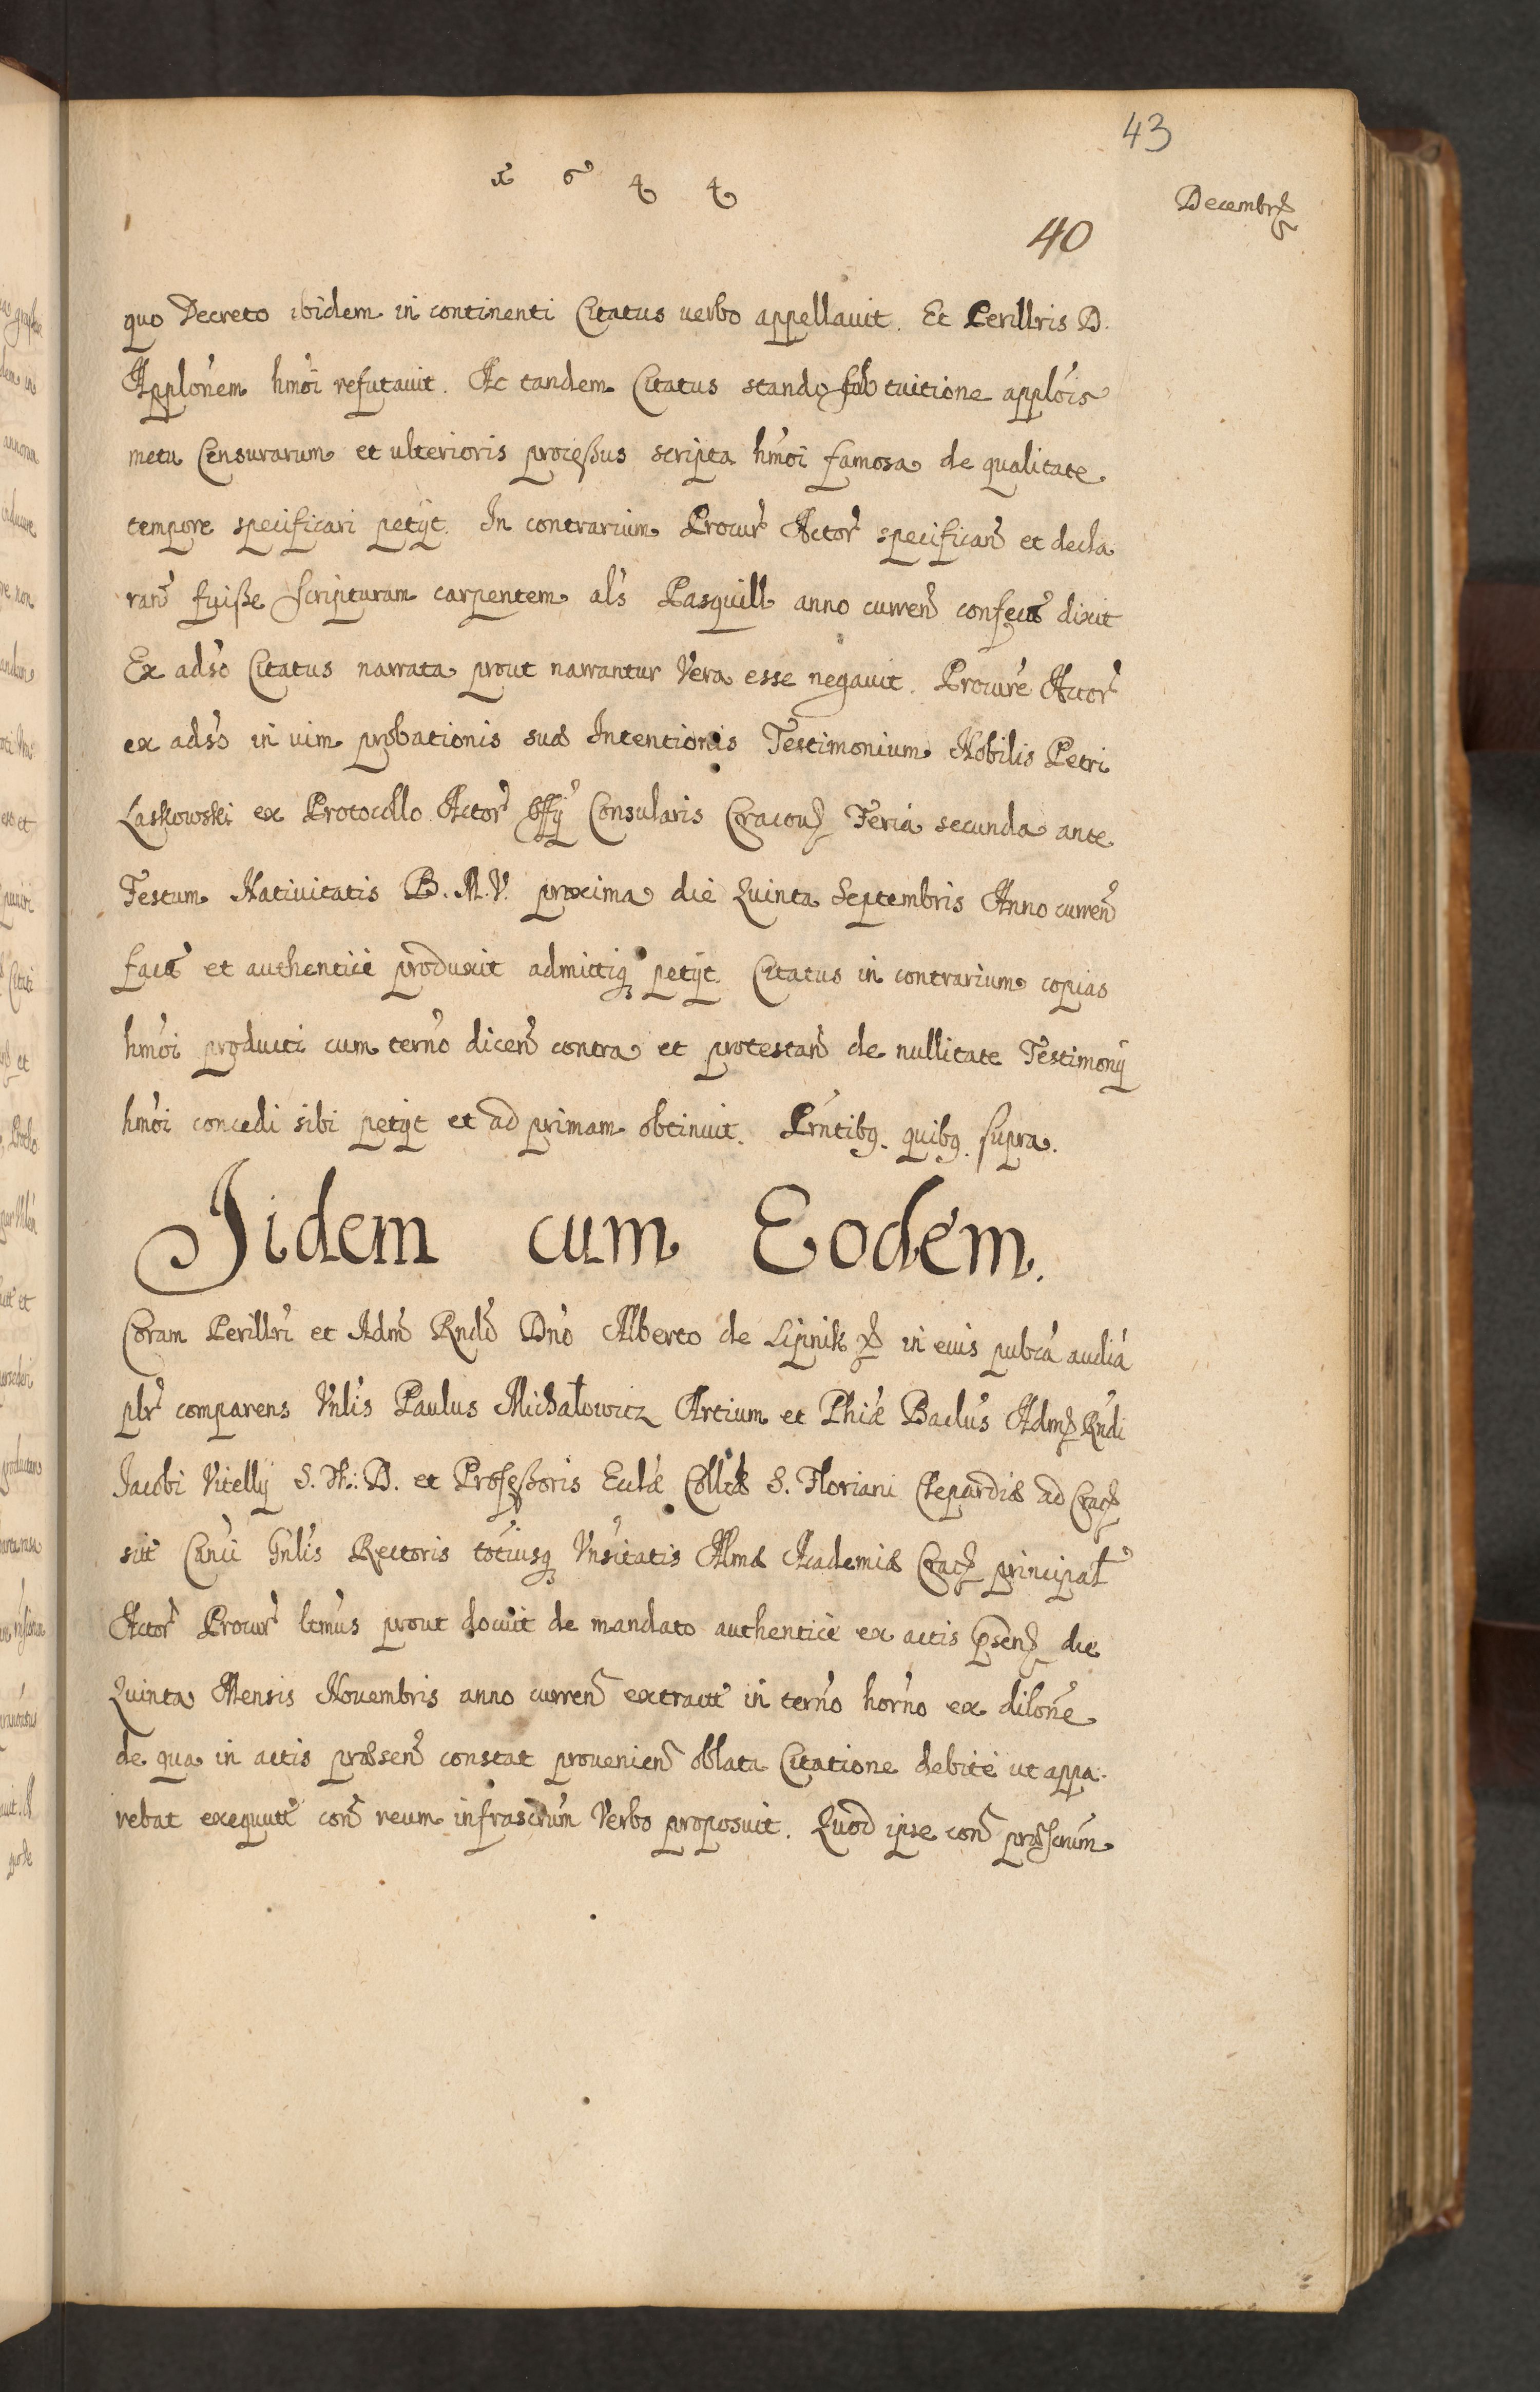 43
1 6 4 4
Decembrs
40
quo Decreto ibidem in continenti Citatus verbo appellauit. Et Perillris D.
Applonem hmoi refutauit. Ac tandem Citatus stando sub tuitione applois
metu Censurarum et ulterioris processus scripta hmoi famosa de qualitate
tempore specificari petijt. In contrarium Procur Actor specifican et decla
ran fuisse scripturam carpentem als Pasquill anno curren confect dixit
Ex adso Citatus narrata prout narrantur Vera esse negauit. Procure Actor
ex adso in uim probationis suæ Intentionis Testimonium Nobilis Petri
Laskowski ex Protocollo Actor Offij Consularis Cracou Feria secunda ante
Festum Natiuitatis B. M. V. proxima die Quinta Septembris Anno curren
fact et authentice produxit admittiq petijt. Citatus in contrarium copias
hmoi producti cum terno dicen contra et protestan de nullitate Testimonij
hmoi concedi sibi petijt et ad primam obtinuit. Prntibq. quibq. supra.
Iidem cum Eodem.
Coram Perillri et Adm Rndo Dno Alberto de Lipnik in eius pubca audia
plr comparens Vnlis Paulus Michałowicz Artium et Phiæ Baclus Adm Rndi
Jacobi Vitellij S. Th: D. et Professoris Eclæ Colltæ S. Floriani Clepardiæ ad Crac
sit Canci Gnlis Rectoris totiusq Vnsitatis Almæ Academiæ Crac principal
Actor Procur ltmus prout docuit de mandato authentice ex actis psen die
Quinta Mensis Nouembris anno curren extract in terno horno ex dilone
de qua in actis præsen constat prouenien oblata Citatione debite ut appa.
rebat exequut con reum infrascrum Verbo proposuit. Quod ipse con præscrum